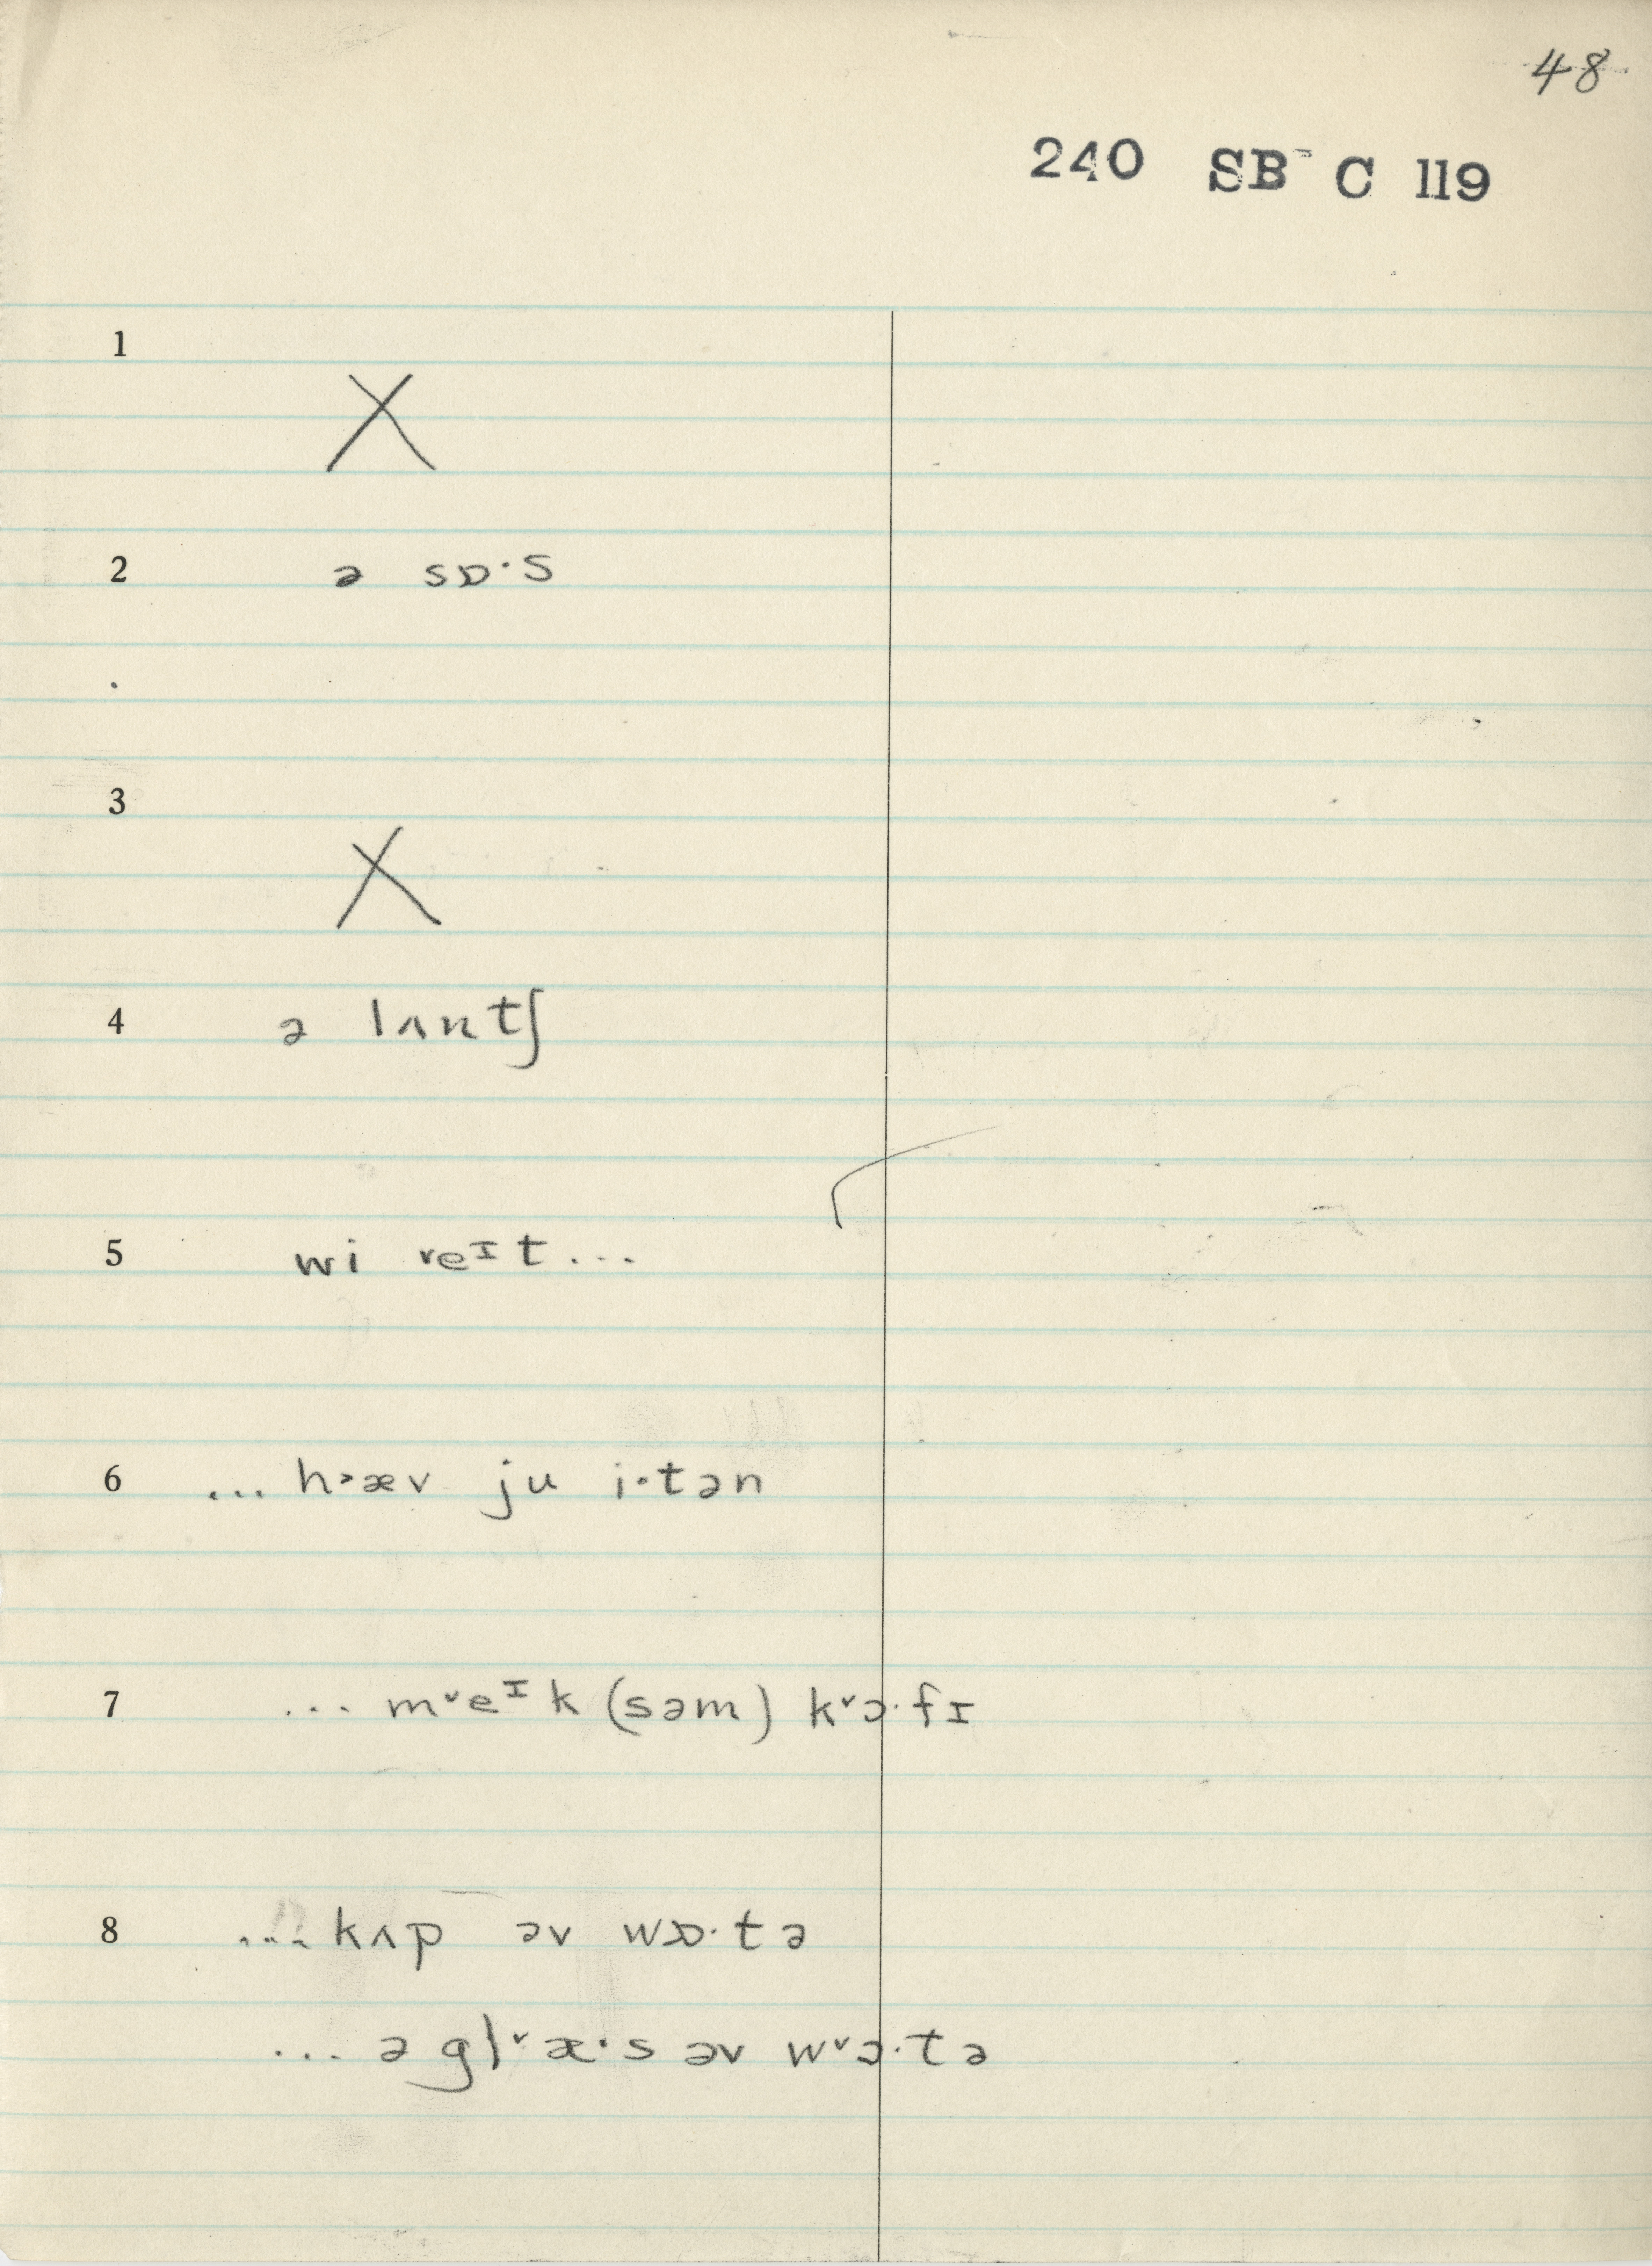 48
240 SB C 119
1
X
2 ə sɒ·s
3
X
4 ə lʌntʃ
5 wi reᶦt...
6 ... h˃æv ju i·tən
7 ... m˅eᶦk (səm) k˅ɔ·fɪ
8 ... kʌp əv wɒ·tə
... ə gl˅æ·s əv w˅ɔ·tə